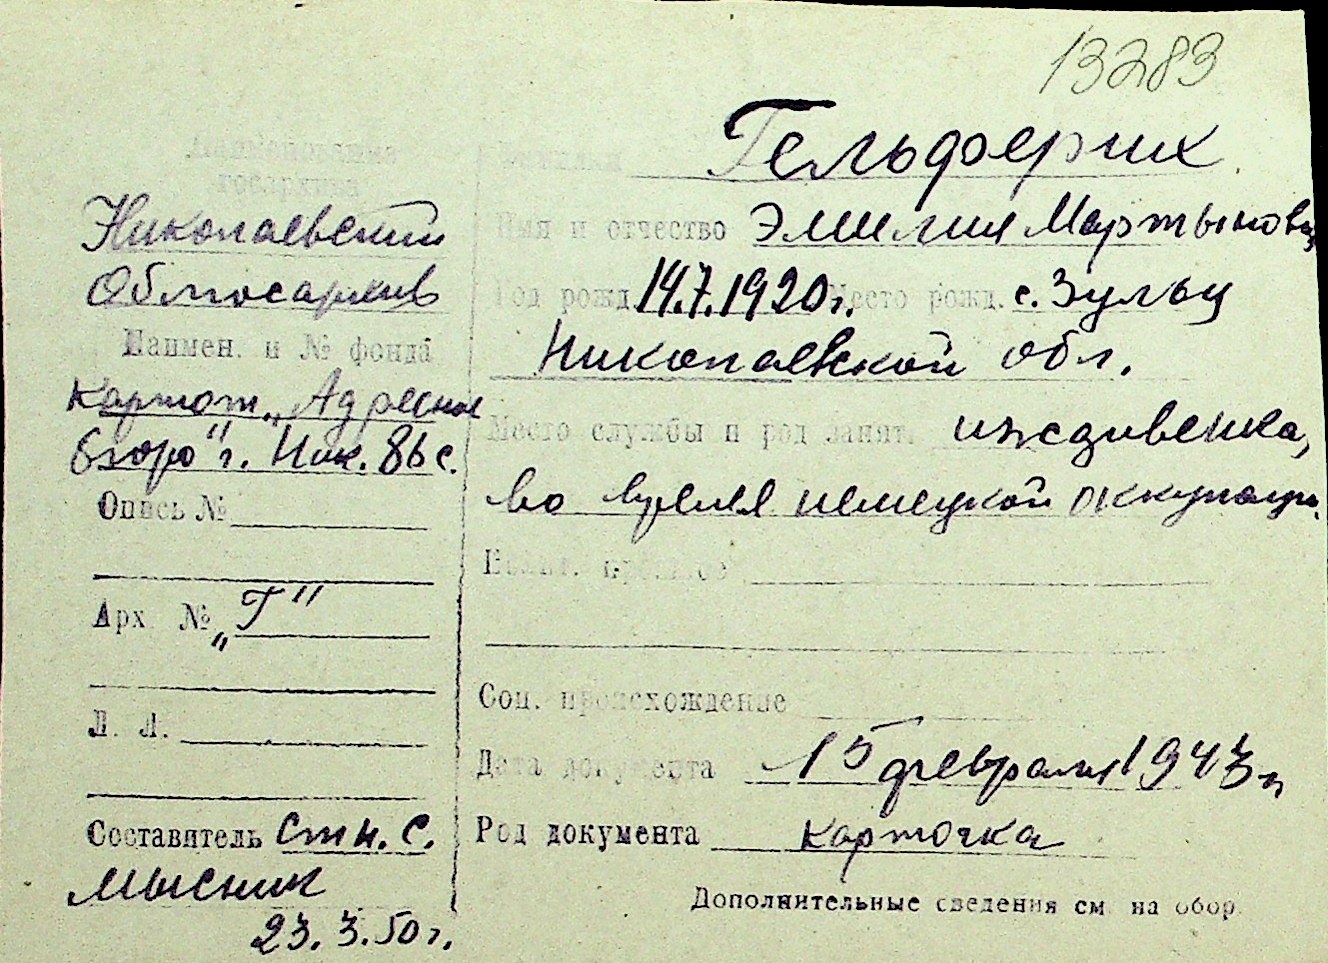 13283
Гельферих
Наименование
госархива
Николаевский
Облгосархив
Наимен. и № фонда
картот. „Адресное
бюро" г. Ник. 86 с.
Опись №
Арх №„Г"
Л. Л.
Составитель ст. н. с.
Мысник
23.3.50 г.
Фамилия
Имя и отчество Эмилия Мартыновна
Год рожд. 14.7.1920 г. Место рожд. с. Зульц
Николаевской обл.
Место службы и род занят. иждивенка,
во время немецкой оккупации.
Соц. происхождение
Дата документа 15 февраля 1943 г.
Род документа карточка
Дополнительные сведения см. на обор.